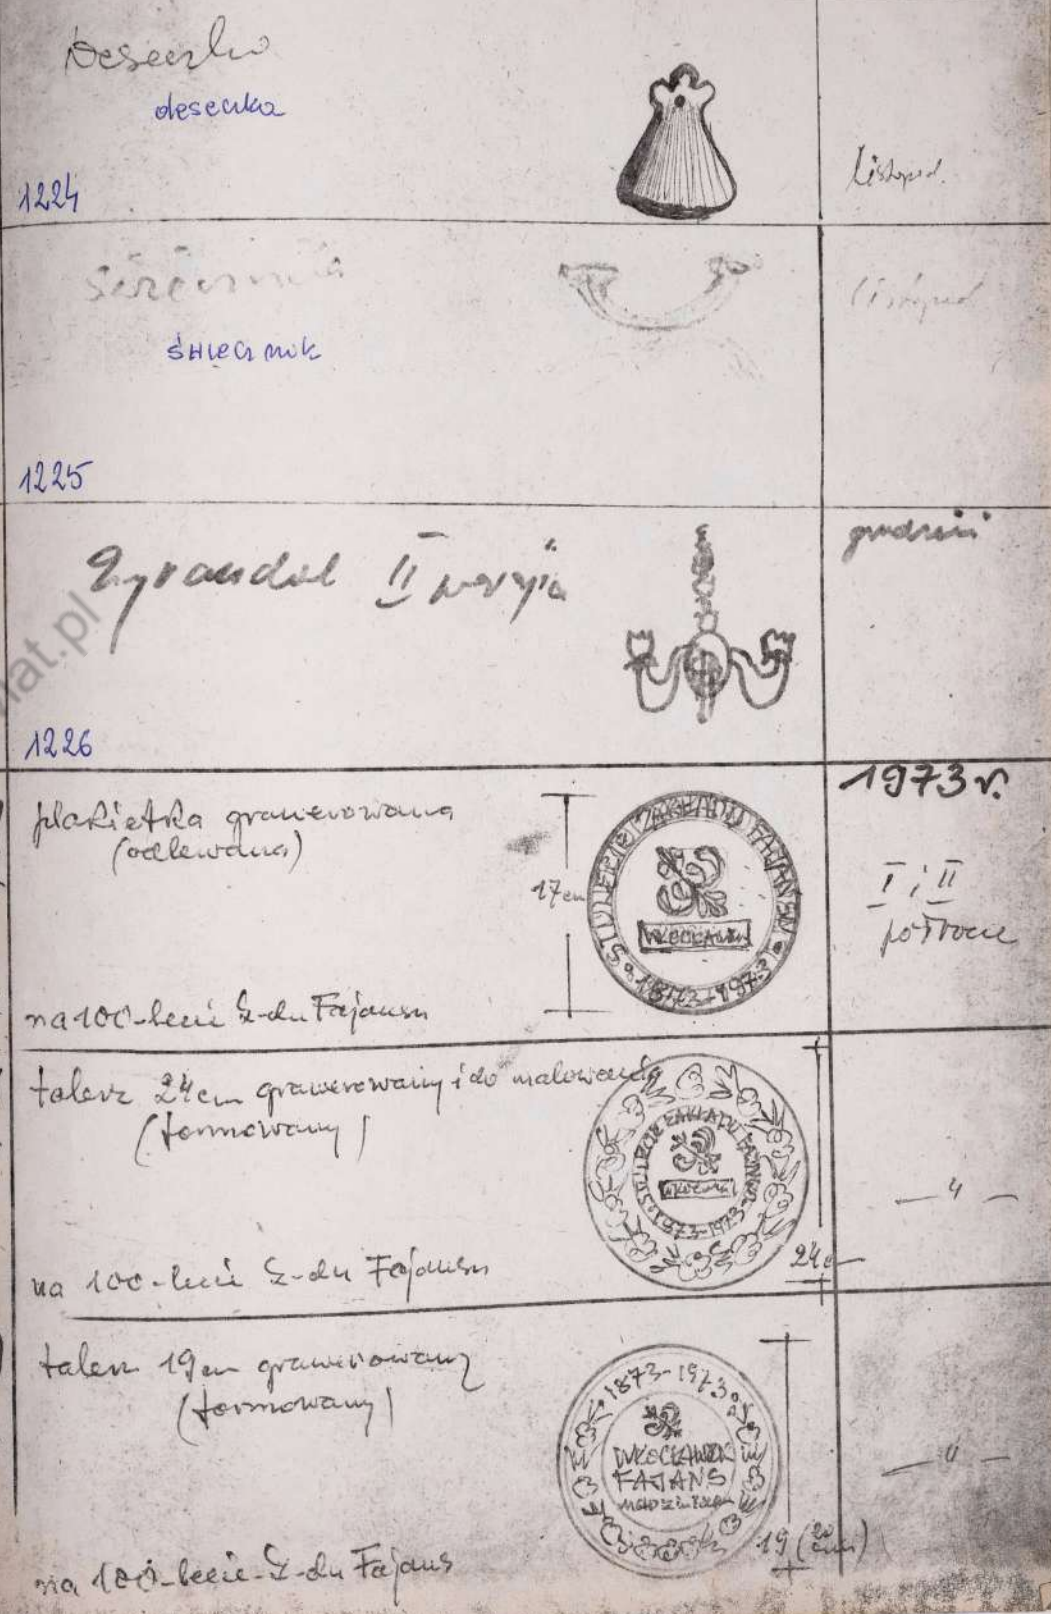 Deseczka
deseczka
1224
listopad.
świecznik
listopad
1225
Żyrandol II wersja
grudzień
1226
1973 r.
plakietka grawerowana
(odlewana)
17 cm
STULECIE ZAKŁADU FAJANSU
WŁOCŁAWEK
1873-1973
I i II
półrocze
na 100-lecie Z-du Fajansu
talerz 24cm grawerowany i do malowania
(formowany)
STULECIE ZAKŁADU FAJANSU
1873-1973
24c
— " —
na 100-lecie Z-du Fajansu
talerz 19cm grawerowany
(formowany)
1873-1973
WŁOCŁAWEK
FAJANS
— " —
19 (20 cm)
na 100-lecie Z-du Fajans
nat.pl